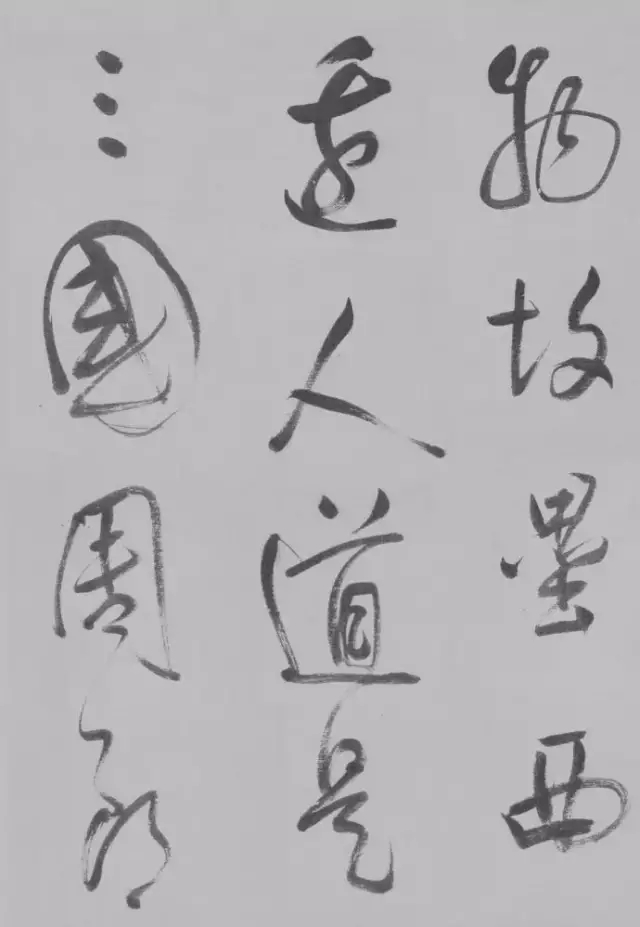 物故垒西
边人道是
三国周郎